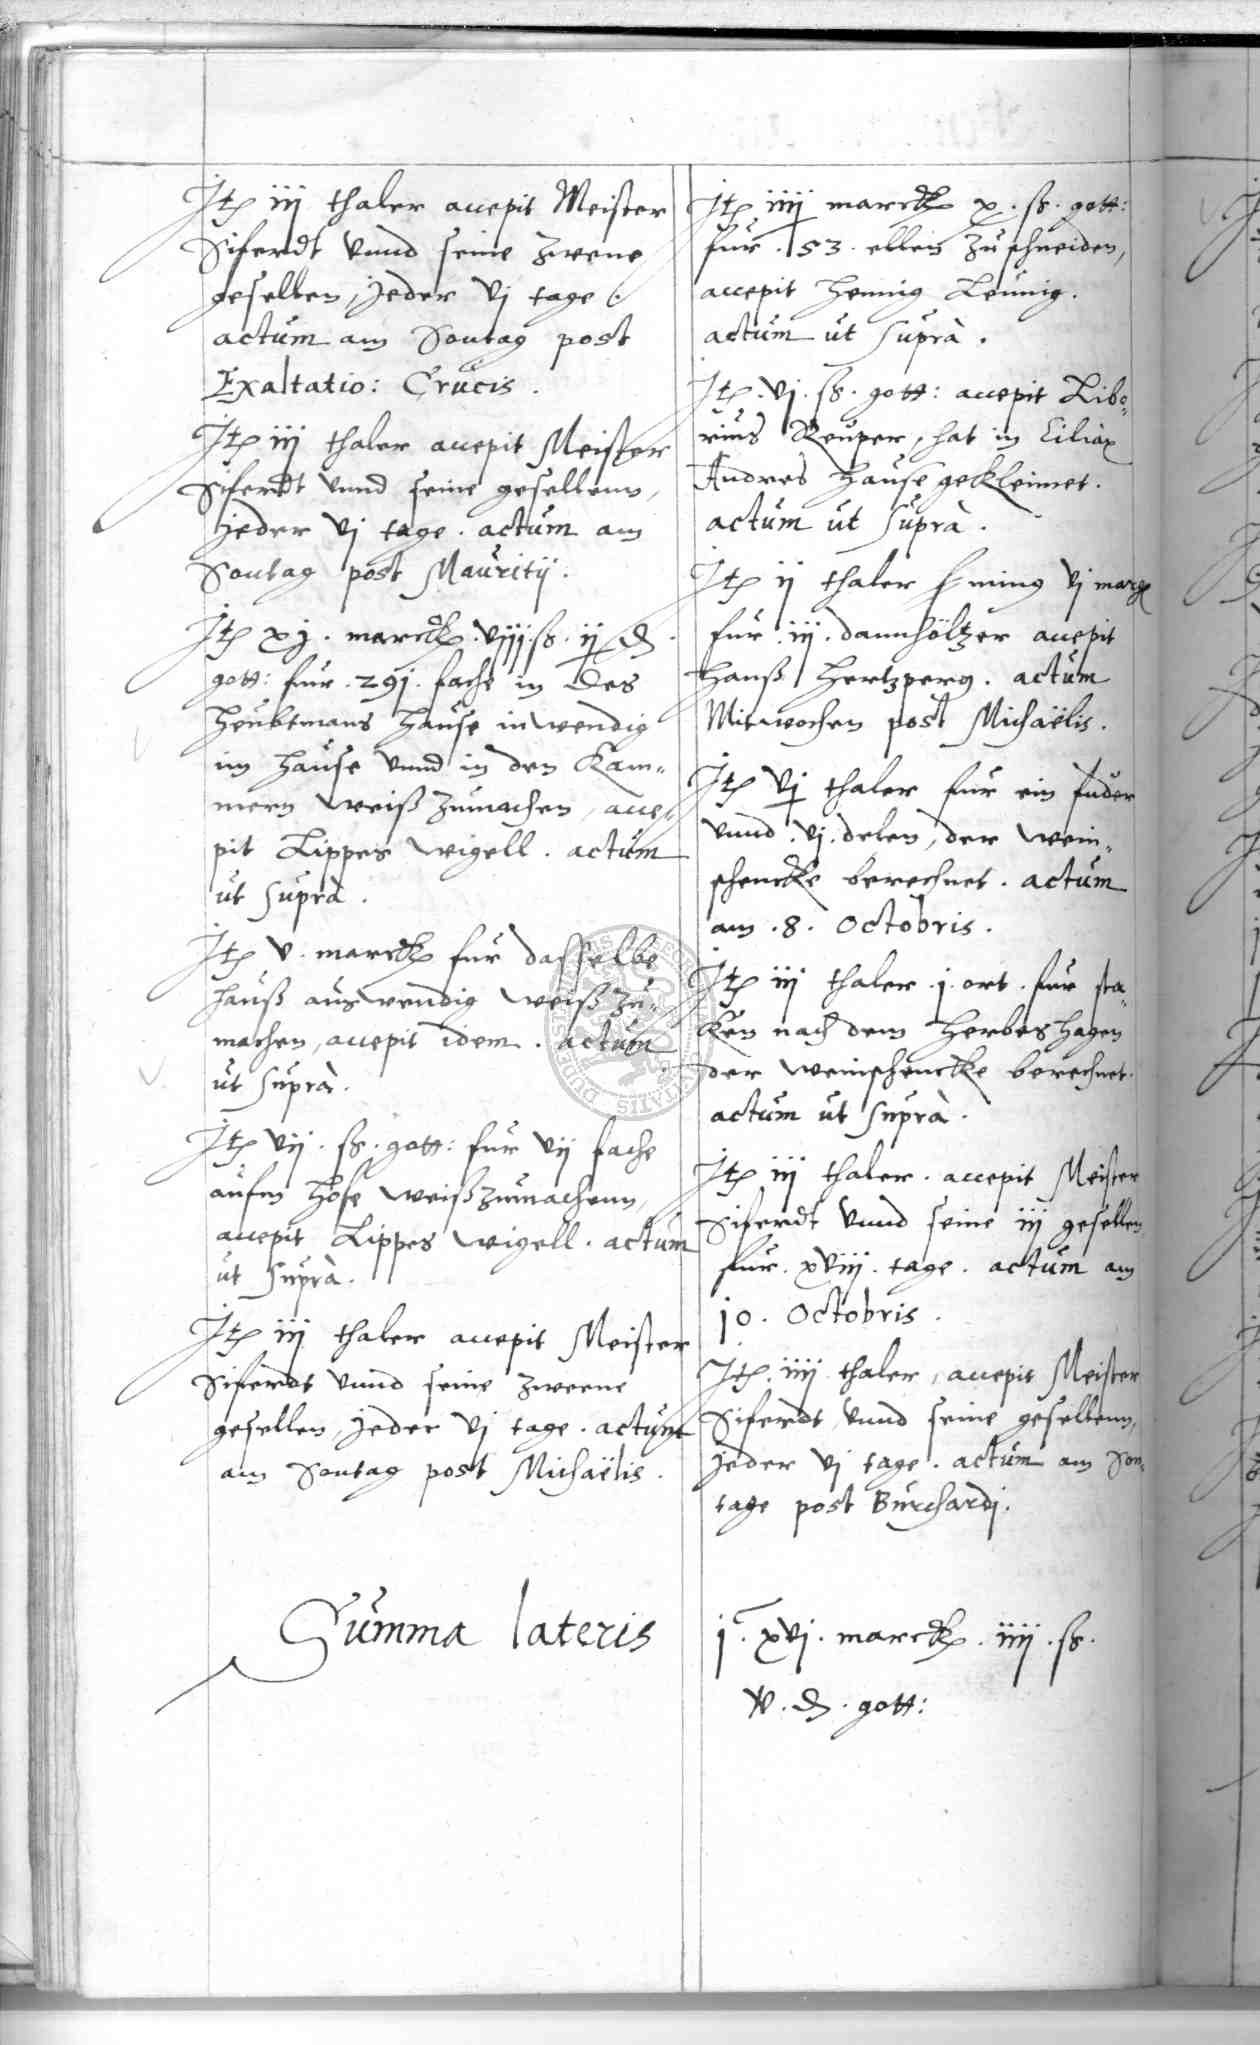 Itm iij thaler accepit Meister
Siferdt vnnd seine zwene
gesellen, jeder vj tage.
actum am Sontag post
Exaltatio: Crucis.
Itm iij thaler accepit Meister
Siferdt vnnd seine gesellenn,
jeder vj tage. actum am
Sontag post Mauritij.
Itm xj. marck. viij. ß. ij ₰.
gott: fur. 291. fache in des
Heubtmans Hause inwendig
im Hause vnnd in den Kam-
mern weiß zumachen, acce-
pit Lippes Wigell. actum
ut suprà.
Itm v. marck fur dasselbe
Hauß auswendig weiß zu-
machen, accepit idem. actum
ut suprà.
Itm vij. ß. gott: fur vij fache
aufm Hofe weiß zumachenn,
accepit Lippes Wigell. actum
ut suprà.
Itm iij thaler accepit Meister
Siferdt vnnd seine zweene
gesellen, jeder vj tage. actum
am Sontag post Michaëlis.
Itm iiij marck x. ß. gott:
fur. 153. ellen zuschneiden,
accepit Hennig Leunig.
actum ut suprà.
Itm. vj. ß. gott: accepit Libo-
rius Keuper, hat in
Andres Hause gekleimet.
actum ut suprà.
Itm ij thaler vj
fur. iij. dannhöltzer accepit
Hanß Hertzperg. actum
Mitwochen post Michaëlis.
Itm vj thaler fur ein fuder
vnnd. vj. delen, der wein-
schencke berechnet. actum
am. 8. Octobris.
Itm iij thaler. j. ort. fur sta-
ken nach dem Herbeshagen
der weinschencke berechnet.
actum ut suprà.
Itm iij thaler. accepit Meister
Siferdt vnnd seine iij gesellen
fur. xviij. tage. actum am
10. Octobris.
Itm. iiij thaler, accepit Meister
Siferdt, vnnd seine gesellenn,
jeder vj tage. actum am Son-
tage post Burchardj.
Summa lateris
jc. xvj. marck. iiij. ß.
₰. gott: